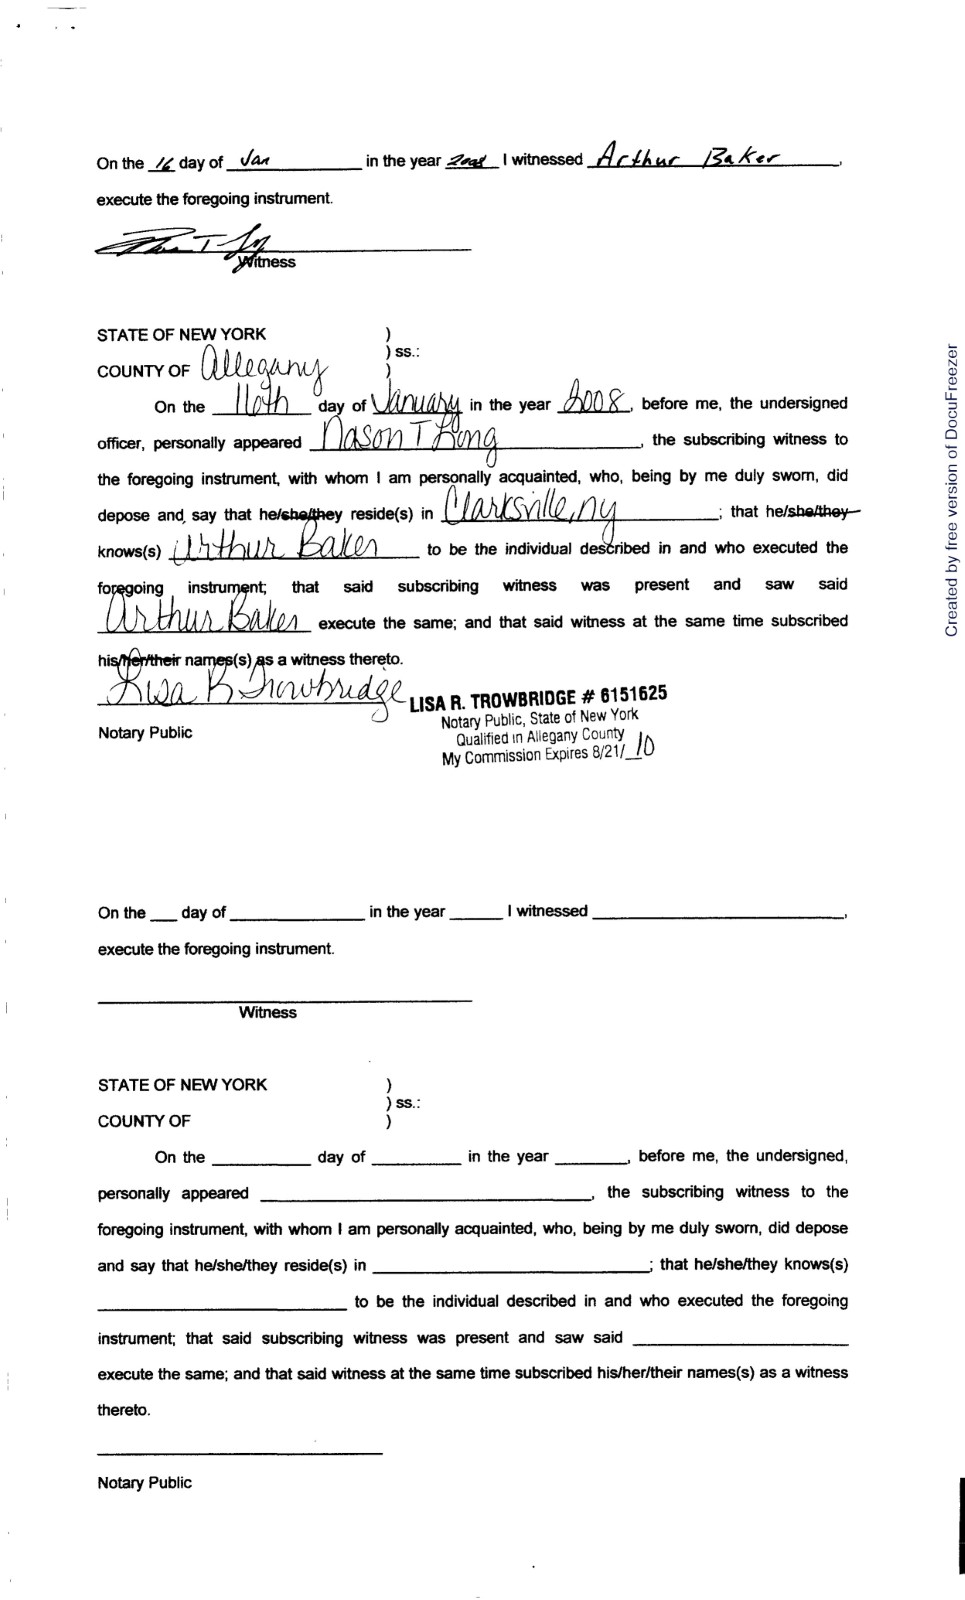 On the 16 day of Jan in the year 2008 I witnessed Arthur Baker,
execute the foregoing instrument.
Witness
STATE OF NEW YORK )
) ss.:
COUNTY OF Allegany )
On the 16th day of January in the year 2008, before me, the undersigned
officer, personally appeared Nason T Long, the subscribing witness to
the foregoing instrument, with whom I am personally acquainted, who, being by me duly sworn, did
depose and say that he/she/they reside(s) in Clarksville, ny; that he/she/they
knows(s) Arthur Baker to be the individual described in and who executed the
foregoing instrument; that said subscribing witness was present and saw said
Arthur Baker execute the same; and that said witness at the same time subscribed
his/her/their names(s) as a witness thereto.
Lisa R Trowbridge LISA R. TROWBRIDGE # 6151625
Notary Public, State of New York
Notary Public Qualified in Allegany County
My Commission Expires 8/21/10
On the ___ day of ___ in the year ___ I witnessed ___,
execute the foregoing instrument.
Witness
STATE OF NEW YORK )
) ss.:
COUNTY OF )
On the ___ day of ___ in the year ___, before me, the undersigned,
personally appeared ___, the subscribing witness to the
foregoing instrument, with whom I am personally acquainted, who, being by me duly sworn, did depose
and say that he/she/they reside(s) in ___; that he/she/they knows(s)
___ to be the individual described in and who executed the foregoing
instrument; that said subscribing witness was present and saw said ___
execute the same; and that said witness at the same time subscribed his/her/their names(s) as a witness
thereto.
Notary Public
Created by free version of DocuFreezer